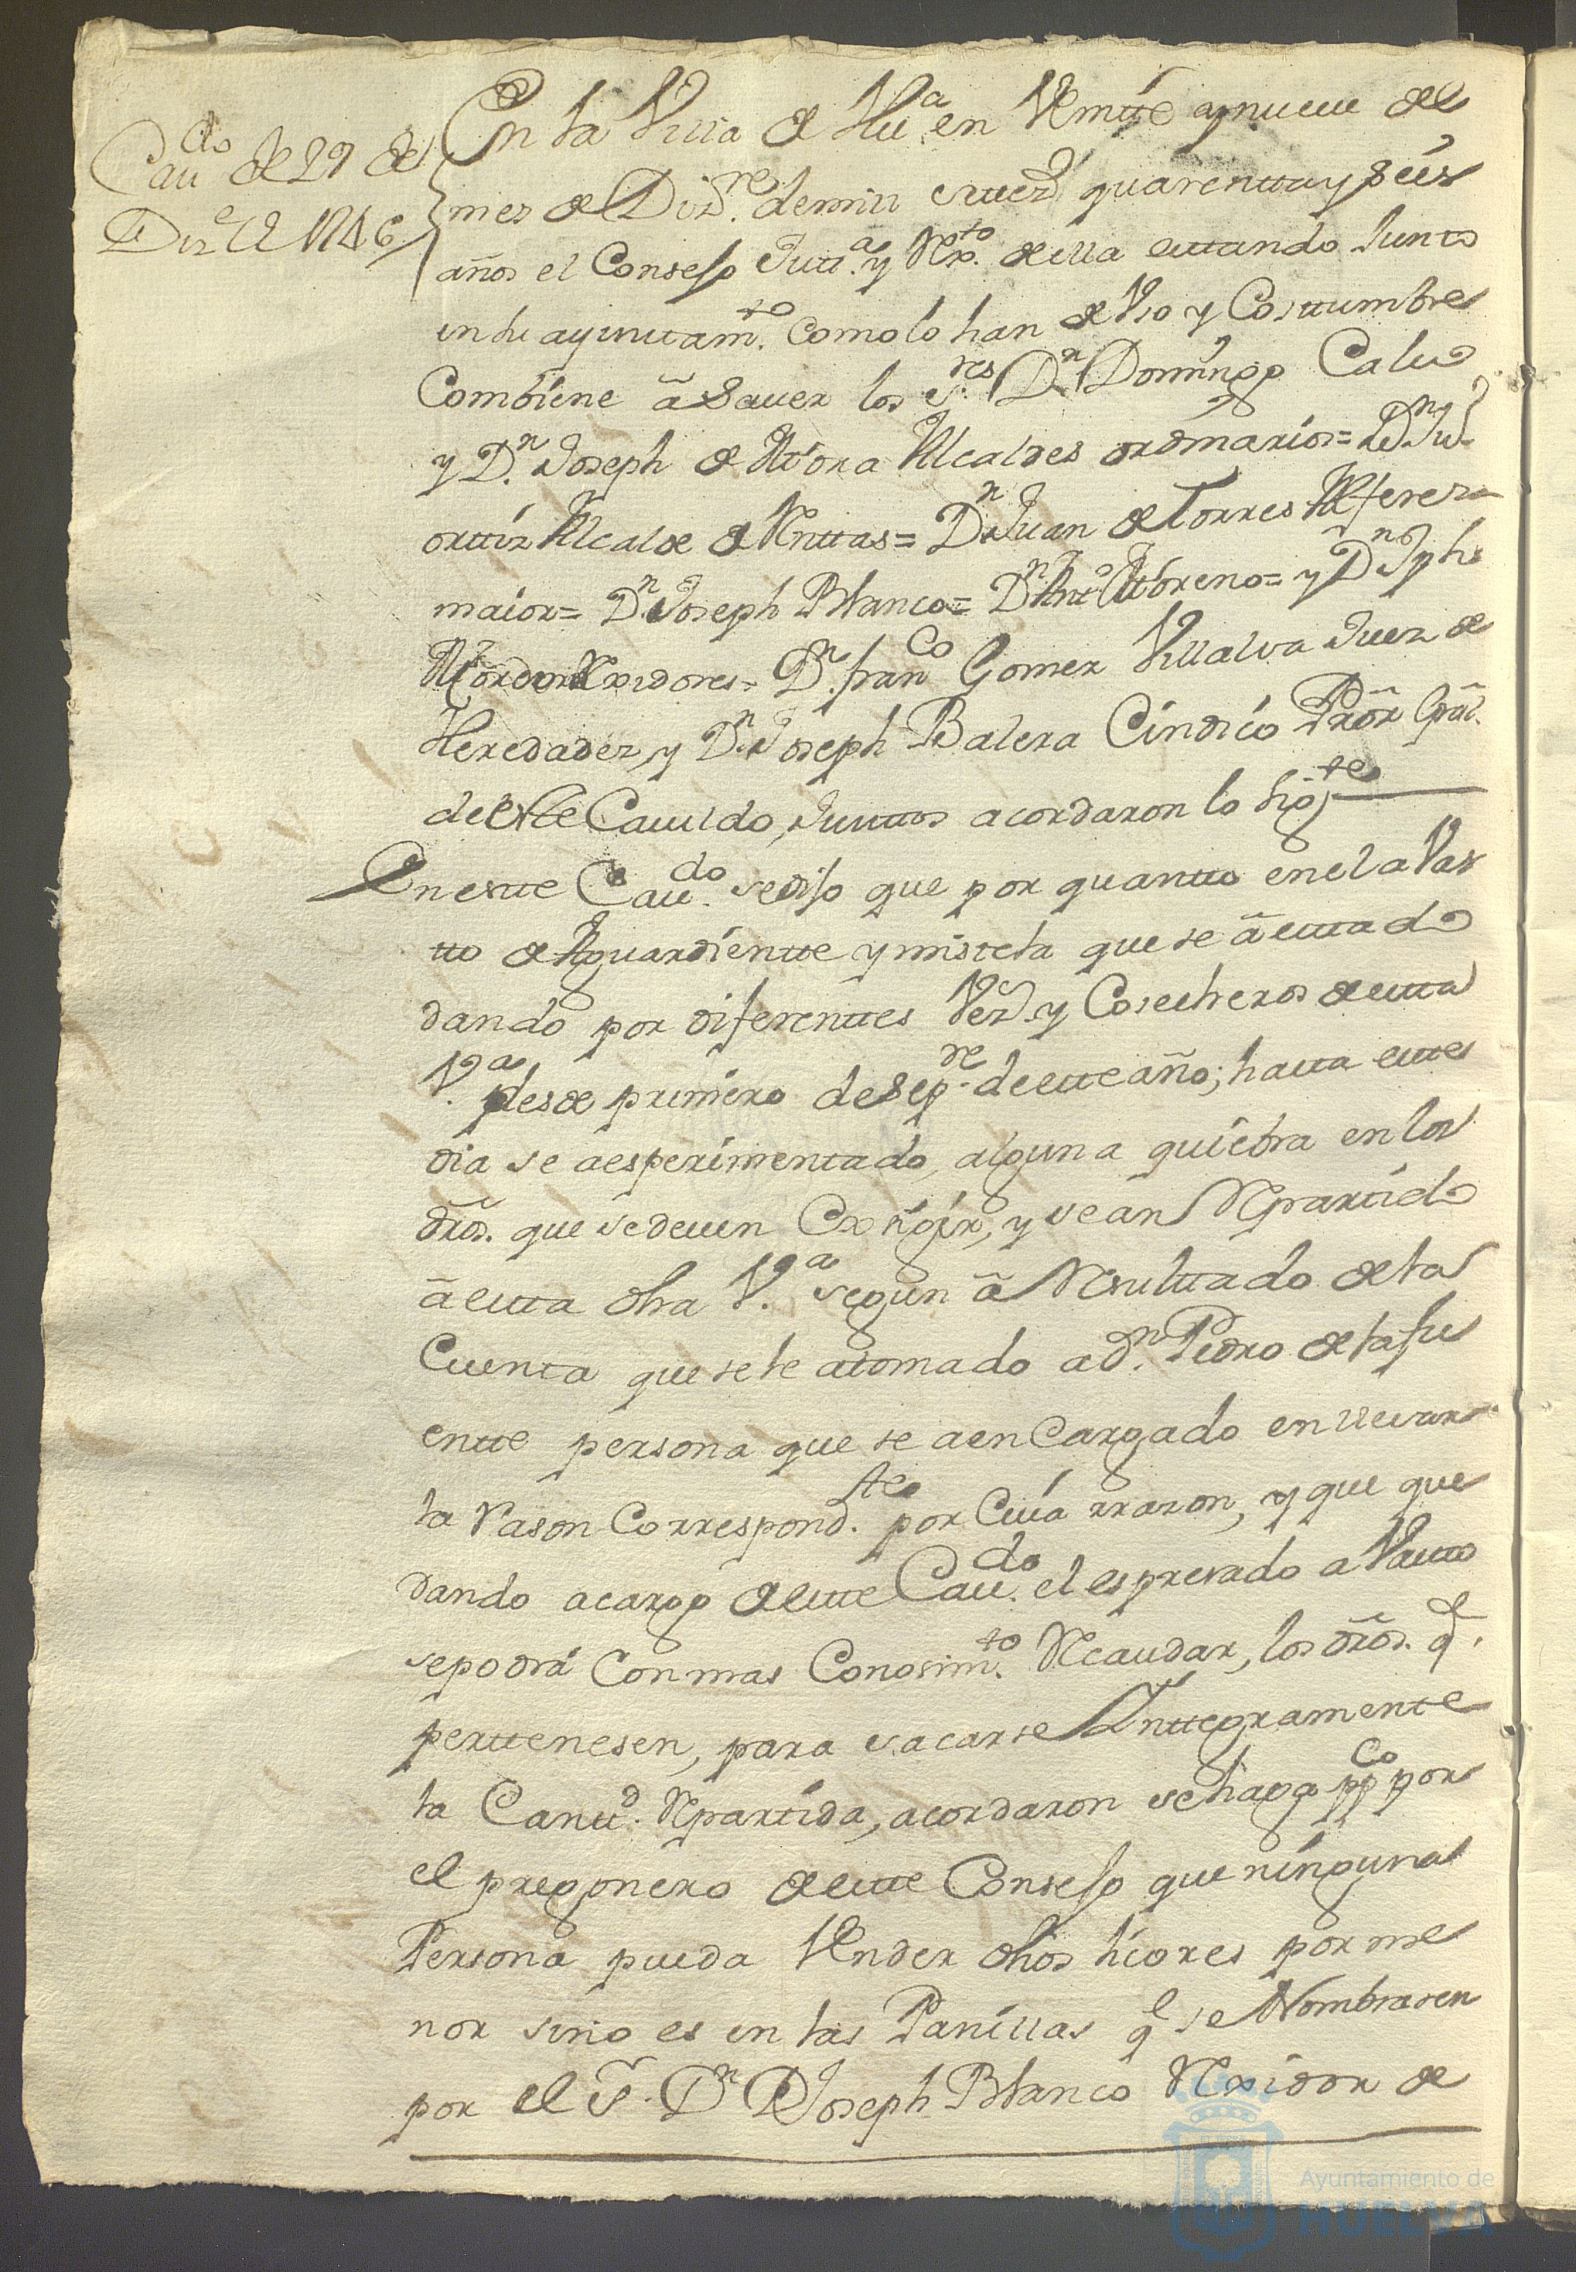 Cau.do de 29 de
Diz.e de 1746
En la Villa de Hu.a en Veintte y nueue del
mes de Diz.re de mill settez.s quarentta y seis
años el Consejo Justt.a y Rex.to de ella estando Junto
en su ayunttam.to como lo han de Vso y Costtumbre
Combiene â Sauer los S.res D.n Domingo Caluo
y D.n Joseph de Mora Alcaldes ordinarios= D.n Ju.o
orttiz Alcalde de Renttas= D.n Juan de Torres Alferez
maior= D.n Joseph Blanco= D.n Antt.o Moreno= y D.n Jph
Rexidores= D.n fran.co Gomez Villalva Juez de
Heredades, y D.n Joseph Balera Cindico Pror Gral.
de este Cauildo, Junttos acordaron lo sig.te
En estte Cau.do se dijo que por quantto en el aVas
tto de Aguardientte y mistela que se â esttado
dando por diferenttes Vez.s y Cosecheros de estta
V.a desde primero de Sep.re de estte año; hasta estte
dia se a esperimentado, alguna quiebra en los
dros. que se deuen Exsigir, y se an Repartido
â estta dha V.a segun â Resulttado de la
Cuenta que se le a tomado a D.n Pedro de la fu
entte persona que se a en Cargado en lleuar
la Rason Correspond.te por Cuia rrazon, y que que
dando a cargo de estte Cau.do el espresado aVastto
se podrá con mas Conosim.to Recaudar, los dros. q.e
perttenesen, para sacarse Ynttegramente
la Cantt.d Repartida, acordaron se haga pp.co por
el pregonero de estte Consejo que ninguna
Persona pueda Vender dhos licores por me
nor sino es en las Panillas q.e se Nombrasen
por el S.r D.n Joseph Blanco Rexidor de
Ayuntamiento de
HUELVA